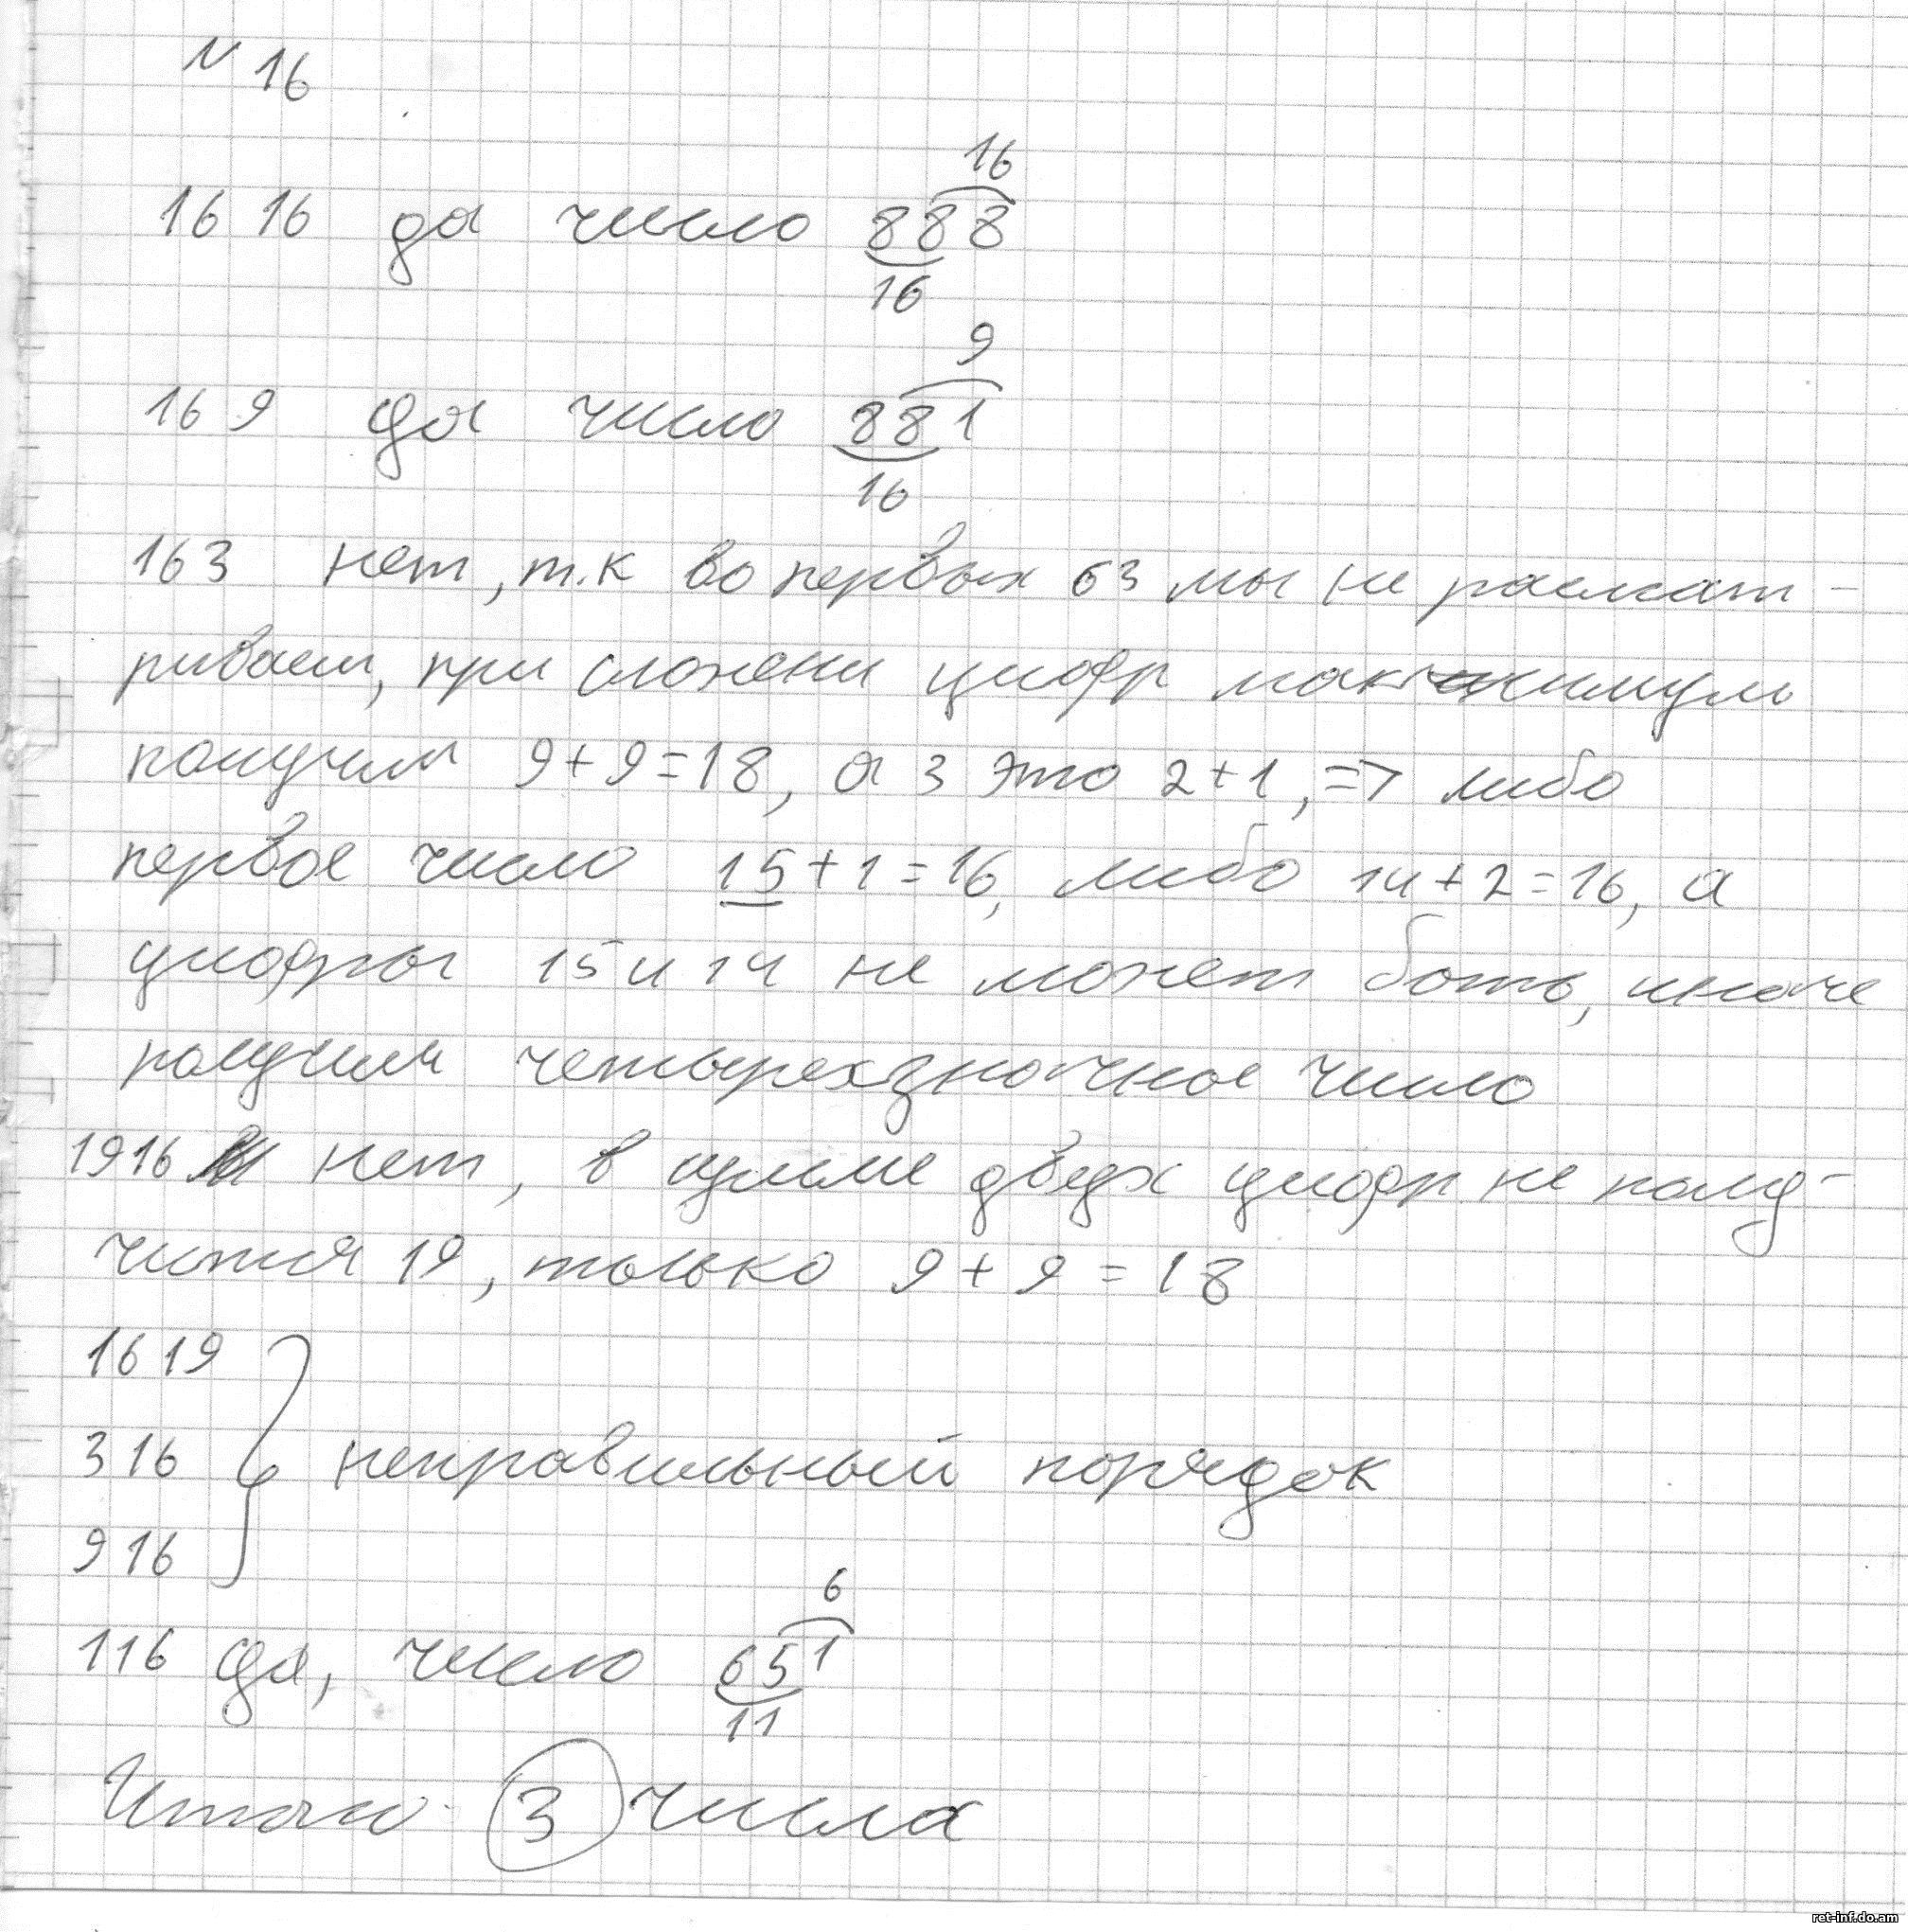 N 16
16
16 16 да число 888
16
9
16 9 да число 881
16
163 нет, т.к во первых 63 мы не расмат-
риваем, при сложени цифр максимум
получим 9+9=18, а 3 это 2+1, => либо
первое число 15+1=16, либо 14+2=16, а
цифры 15 и 14 не может быть, иначе
получим четырехзначное число
1916 нет, в сумме двух цифр не полу-
чится 19, только 9+9=18
1619
316 неправильный порядок
916
6
116 да, число 651
11
Итого 3 числа
ret-inf.do.am